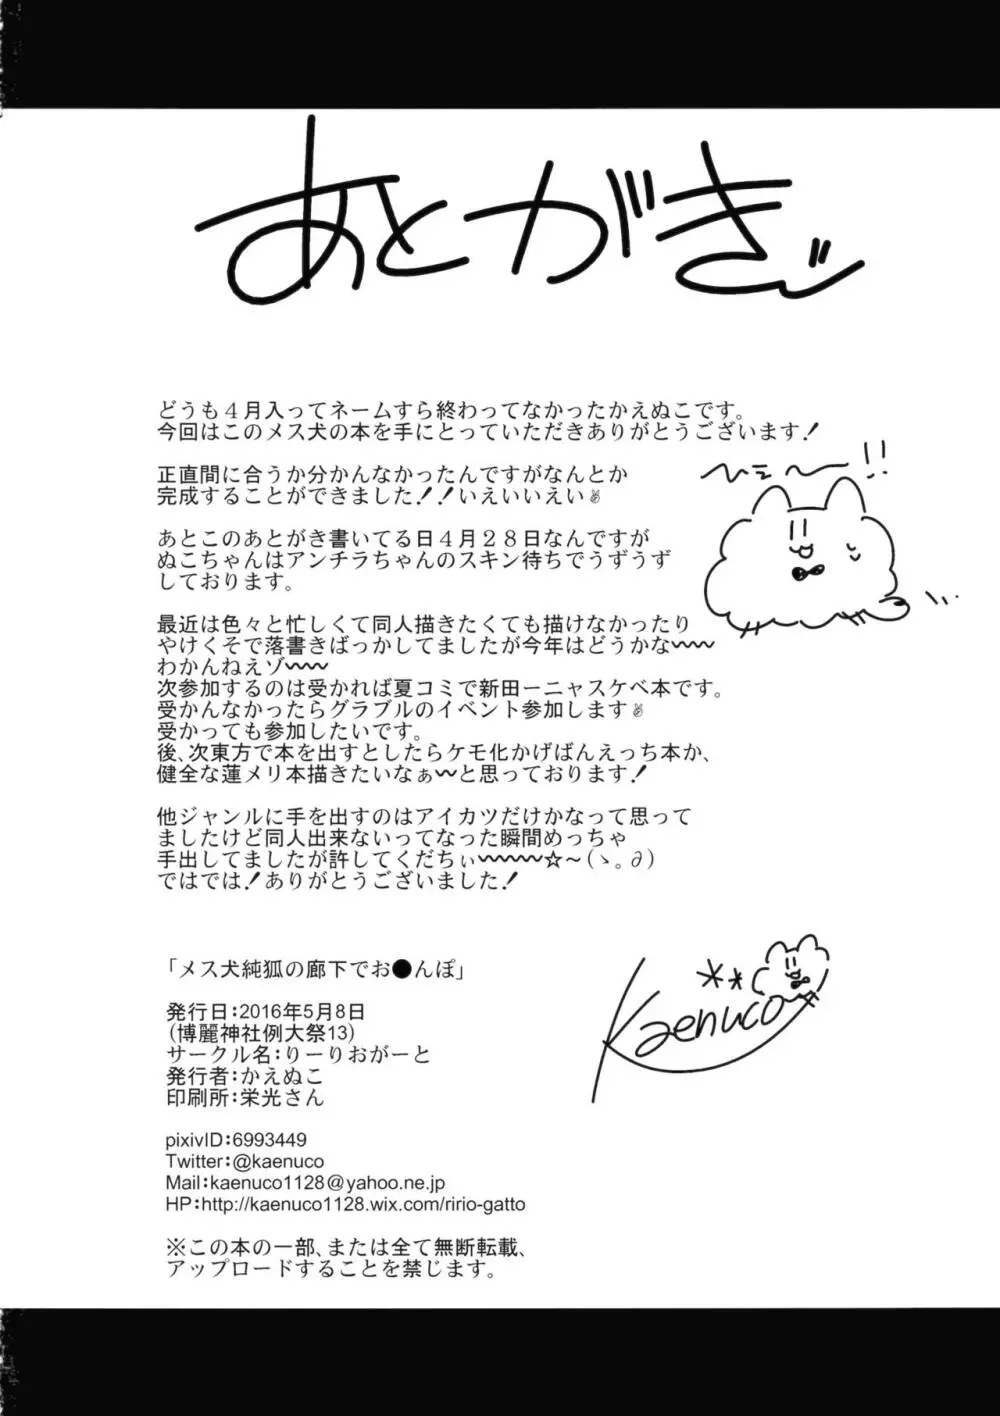 あとがき
どうも４月入ってネームすら終わってなかったかえぬこです。
今回はこのメス犬の本を手にとっていただきありがとうございます！
ひえ〜!!
正直間に合うか分かんなかったんですがなんとか
完成することができました！！いえいいえい✌
あとこのあとがき書いてる日４月２８日なんですが
ぬこちゃんはアンチラちゃんのスキン待ちでうずうず
しております。
最近は色々と忙しくて同人描きたくても描けなかったり
やけくそで落書きばっかしてましたが今年はどうかな〰〰
わかんねえゾ〰〰
次参加するのは受かれば夏コミで新田一ニャスケベ本です。
受かんなかったらグラブルのイベント参加します✌
受かっても参加したいです。
後、次東方で本を出すとしたらケモ化かげばんえっち本か、
健全な蓮メリ本描きたいなぁ〰と思っております！
他ジャンルに手を出すのはアイカツだけかなって思って
ましたけど同人出来ないってなった瞬間めっちゃ
手出してましたが許してくだちぃ〰〰〰☆～(ゝ。∂)
ではでは！ありがとうございました！
「メス犬純狐の廊下でお●んぽ」
発行日：2016年5月8日
(博麗神社例大祭13)
サークル名：りーりおがーと
発行者：かえぬこ
印刷所：栄光さん
Kaenuco
pixivID：6993449
Twitter：@kaenuco
Mail：kaenuco1128@yahoo.ne.jp
HP：http://kaenuco1128.wix.com/ririo-gatto
※この本の一部、または全て無断転載、
アップロードすることを禁じます。